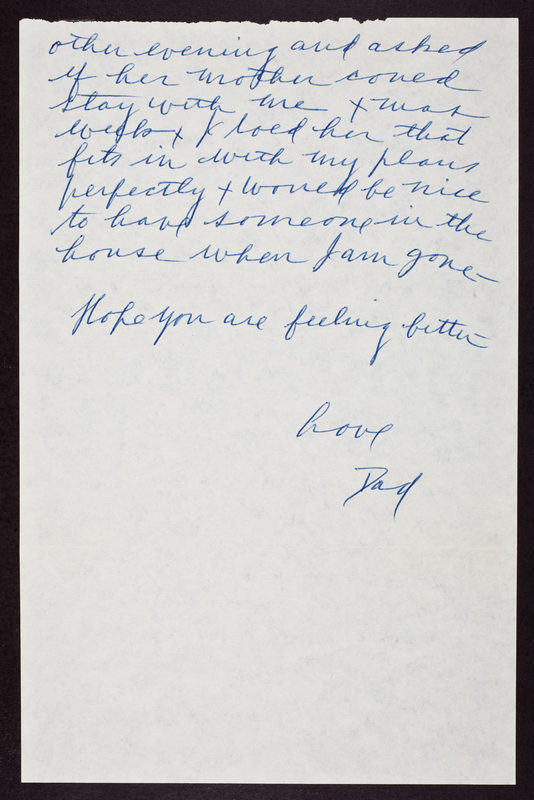 other evening and asked
if her mother could
stay with me
I told her that
fits in with my plans
perfectly + would be nice
to have someone in the
house when I am gone—
Hope you are feeling better—
Love
Dad